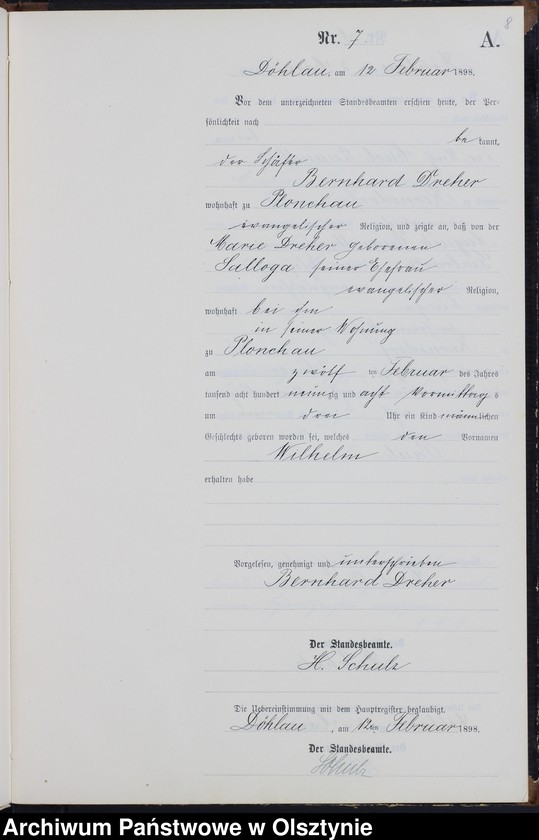 8
Nr. 7
A.
Döhlau, am 12 Februar 1898.
Vor dem unterzeichneten Standesbeamten erschien heute, der Per-
sönlichkeit nach
be kannt,
der Schäfer
Bernhard Dreher
wohnhaft zu Plonchau
evangelischer Religion, und zeigte an, daß von der
Marie Dreher geborenen
Salloga seiner Ehefrau
evangelischer Religion,
wohnhaft bei ihm
in seiner Wohnung
zu Plonchau
am zwölf ten Februar des Jahres
tausend acht hundert neunzig und acht Vormittags
um drei Uhr ein Kind männlichen
Geschlechts geboren worden sei, welches den Vornamen
Wilhelm
erhalten habe
Vorgelesen, genehmigt und unterschrieben
Bernhard Dreher
Der Standesbeamte.
H. Schulz
Die Uebereinstimmung mit dem Hauptregister beglaubigt.
Döhlau, am 12ten Februar 1898.
Der Standesbeamte.
Schulz
Archiwum Państwowe w Olsztynie